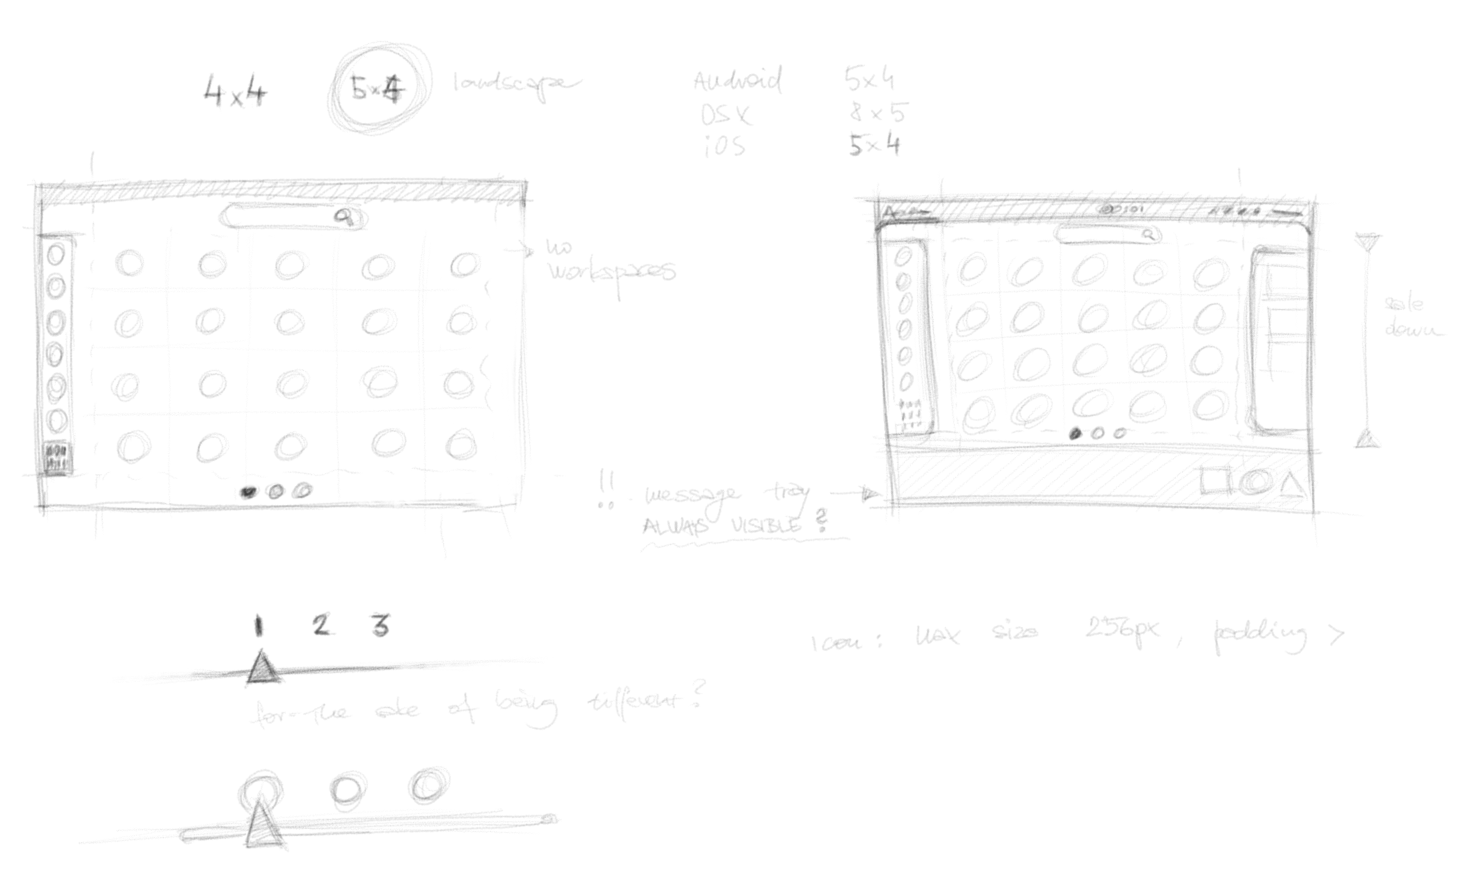 4x4 5x4 landscape
Android 5x4
OSX 8x5
iOS 5x4
no
workspaces
scale
down
!! message tray
ALWAYS VISIBLE ?
1 2 3
for the sake of being different?
icon: max size 256px, padding >